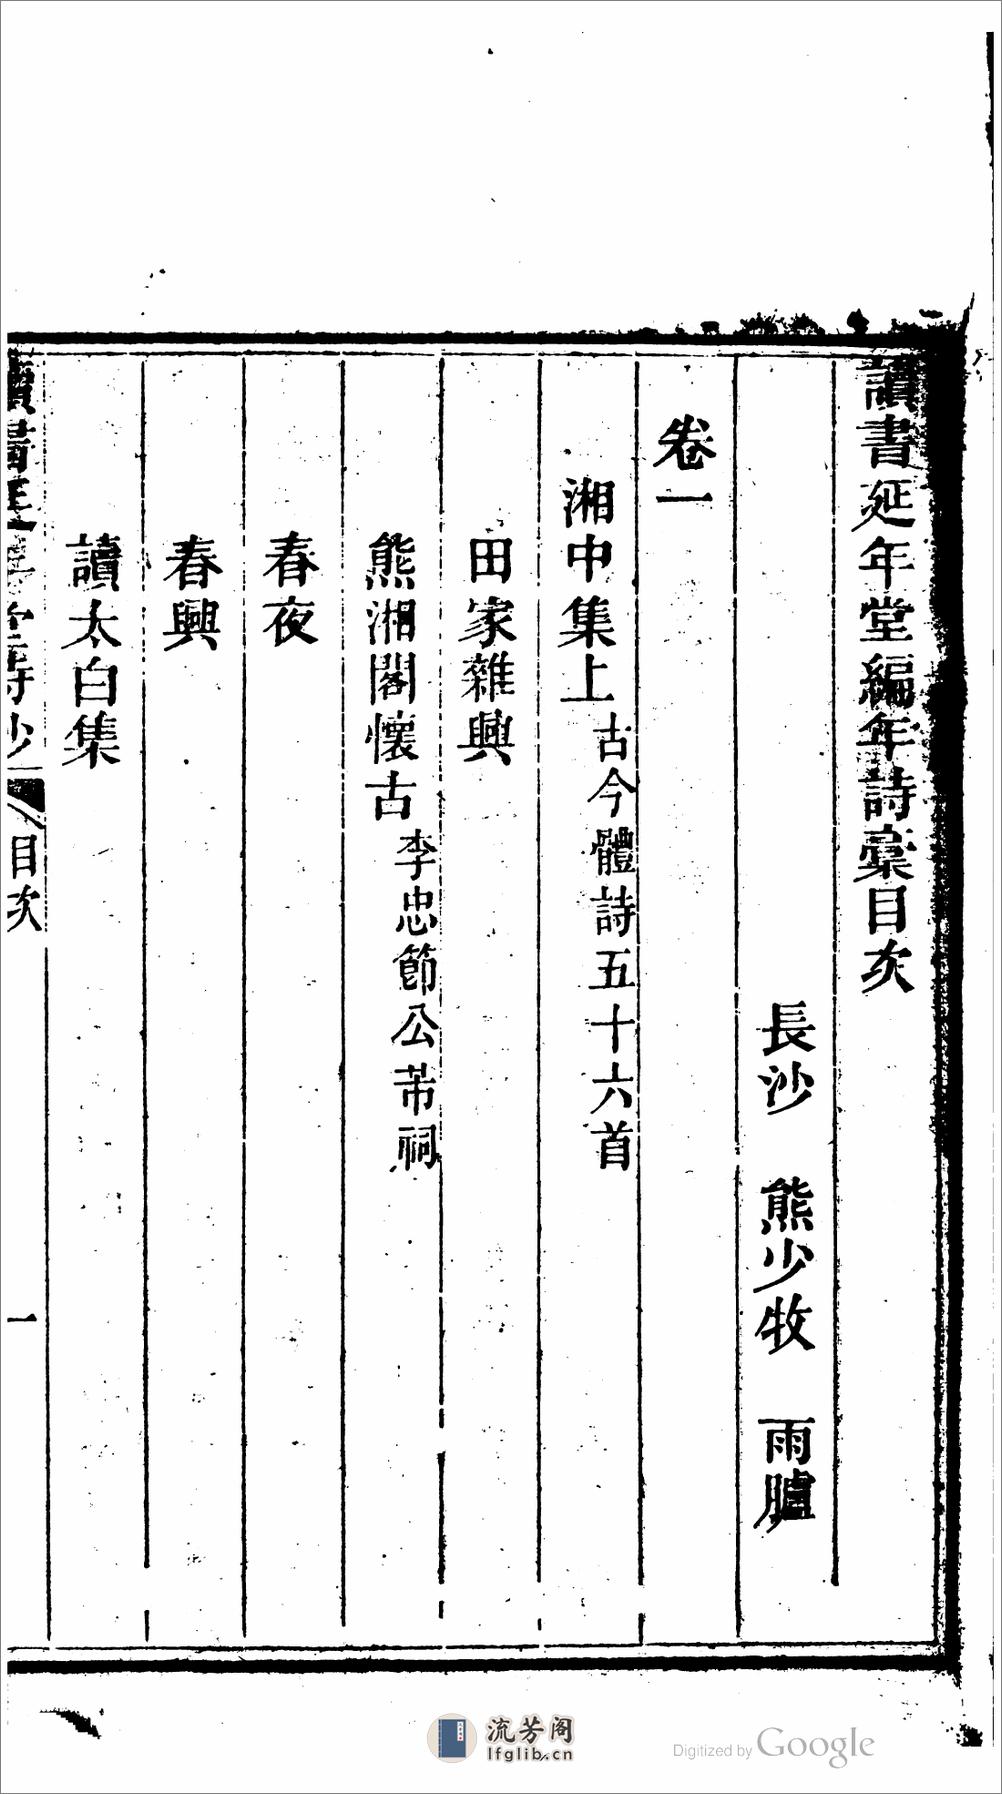 讀書延年堂編年詩稾目次
長沙　熊少牧　雨臚
卷一
湘中集上古今體詩五十六首
田家雜興
熊湘閣懷古李忠節公芾祠
春夜
春興
讀太白集
目次
一
流芳阁
lfglib.cn
Digitized by Google